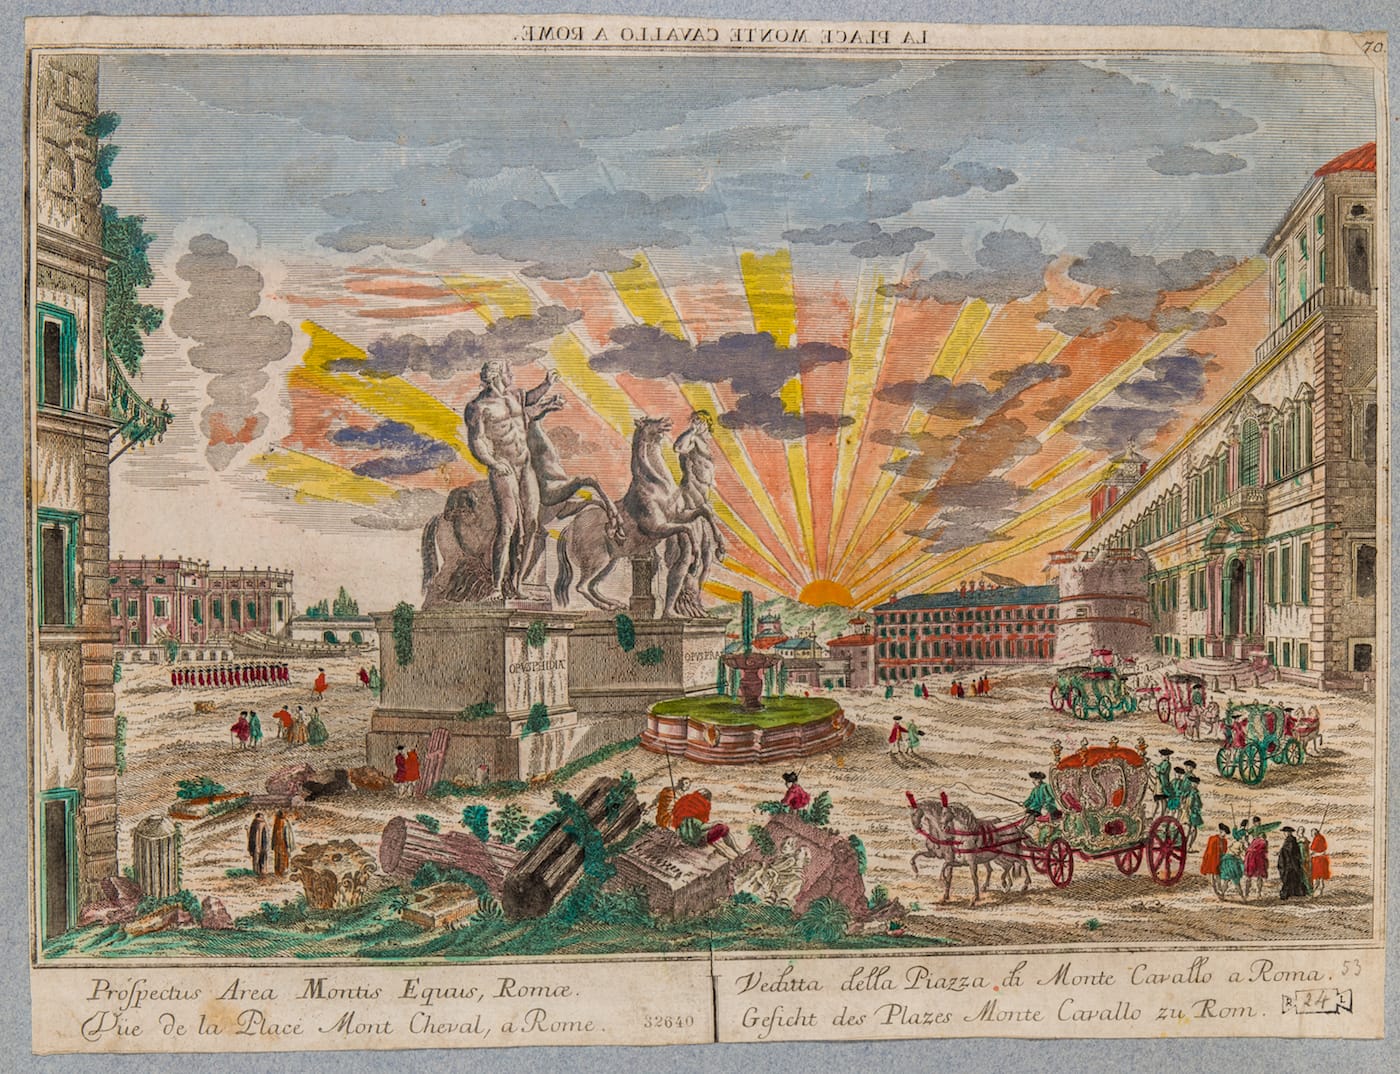 LA PLACE MONTE CAVALLO A ROME.
70.
OPVSPHIDIA
OPVSPRA
Próspectus Area Montis Equus, Romæ.
Vüe de la Place Mont Cheval, a Rome.
32640
Veduta della Piazza di Monte Cavallo a Roma.
53
Gesicht des Plazes Monte Cavallo zu Rom.
R 24 L